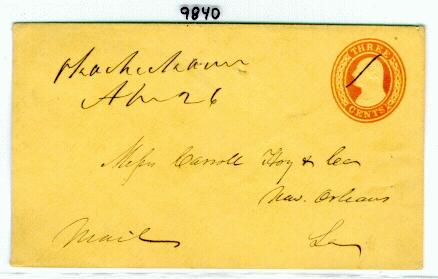 9840
THREE
CENTS
Apr 26
Messrs Carroll Hoy & Co
New. Orleans
Mail
La